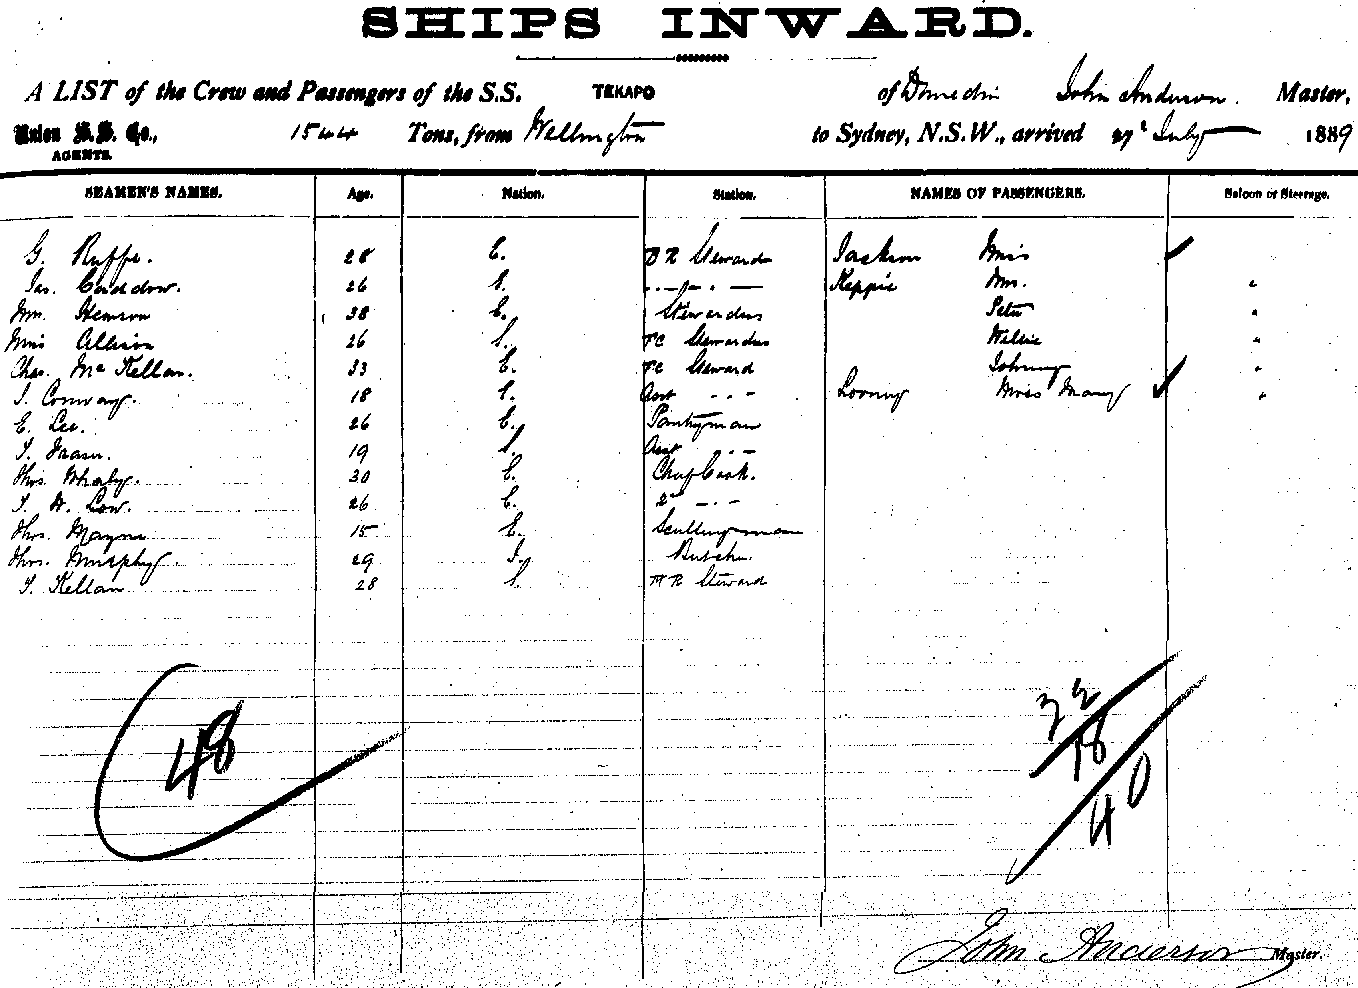 SHIPS INWARD.
A LIST of the Crew and Passengers of the S.S. TEKAPO of Dunedin John Anderson. Master,
Union S.S. Co., 1544 Tons, from Wellington to Sydney, N.S.W., arrived 27th July 1889
AGENTS.
SEAMEN'S NAMES. Age. Nation. Station. NAMES OF PASSENGERS. Saloon or Steerage.
G. Ruffe. 28 E. Steward Jackson Miss
Jas. Caddow. 26 S. Keppie Mrs. "
Wm. Hewson 38 E. Stewardess Peter "
Miss Allison 26 S. Stewardess Willie "
Chas. McKellar. 33 E. Steward Johnny "
J. Conway. 18 S. Asst " Looney Miss Mary "
E. Lee. 26 E. Pantryman
J. Fraser. 19 S. Asst "
Thos. Whaley. 30 E. Chief Cook.
J. H. Low. 26 E. 2nd "
Thos. Mayne 15 E. Sculleryman
Thos. Murphy. 29 I. Butcher.
J. Kellan 28 S. Steward
48
22
18
40
John Anderson Master.